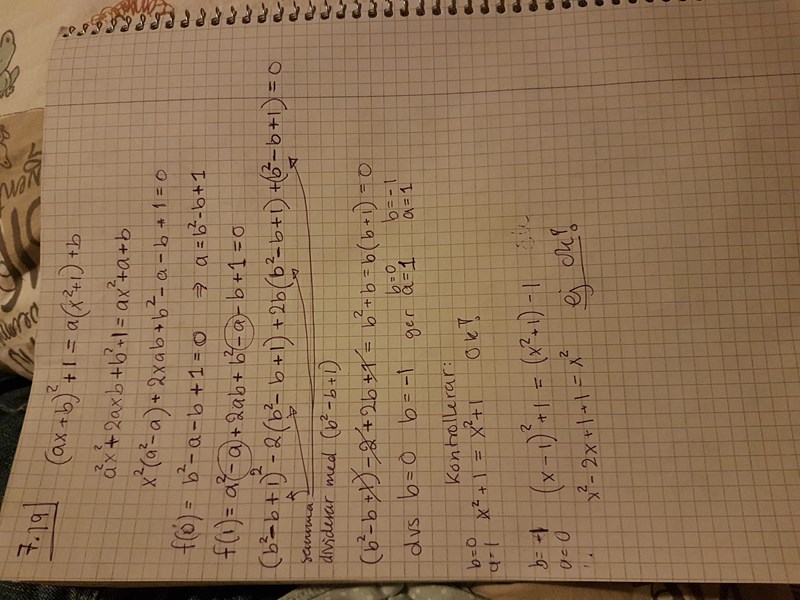 7.19
(ax+b)²+1 = a(x²+1)+b
a²x²+2axb+b²+1 = ax²+a+b
x²(a²-a)+2xab+b²-a-b+1=0
f(0) = b²-a-b+1=0 ⇒ a=b²-b+1
f(1) = a²-a+2ab+b²-a-b+1=0
(b²-b+1)²-2(b²-b+1)+2b(b²-b+1)+(b²-b+1)=0
samma
dividerar med (b²-b+1)
(b²-b+1)-2+2b+1 = b²+b = b(b+1) = 0
dvs b=0 b=-1 ger b=0 a=1 b=-1 a=1
Kontrollerar:
b=0 a=1 x²+1 = x²+1 OK!
b=-1 a=0 (x-1)²+1 = (x²+1)-1
∴ x²-2x+1+1 = x² ej ok!